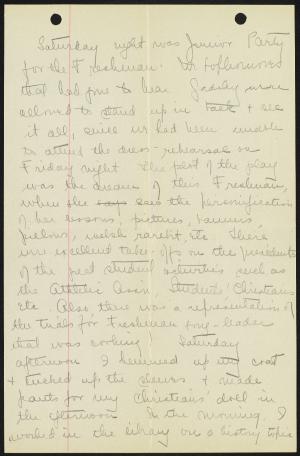 Saturday night was Junior Party
for the Freshman. We Sophomores
that had gone to hear were
allowed to stand up in back & see
it all, since we had been unable
to attend the dress-rehearsal on
Friday night. The plot of the play
was the dream of this Freshman,
when she says sees the personification
of her lessons, pictures, banners,
pillows, welsh rarebit, etc. There
were excellent take-offs on the presidents
of the real student activities such as
the Athletic Assn, Students' Christian
etc. Also, there was a representation of
the trials for Freshman song-leader
that was coming. Saturday
afternoon I hemmed up my coat
& tucked up the sleeves & made
pants for my Christians' doll in
the afternoon. In the morning, I
worked in the library on a history topic